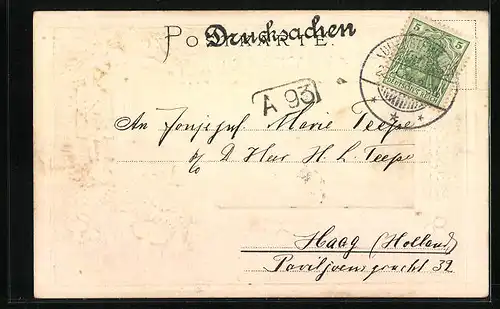 Drucksachen
POSTKARTE.
5 5
A 93
An Jongejuf Marie Teepe
p/o D Heer H. L. Teepe
Haag (Holland)
Paviljoensgracht 32